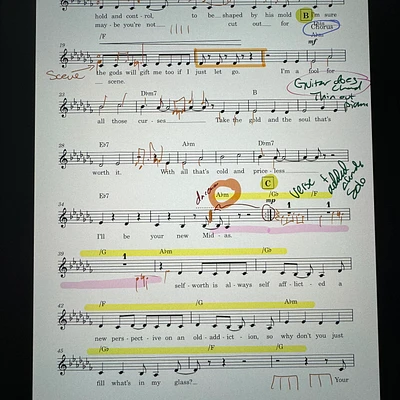 hold and con-trol, to be shaped by his mold I'm sure
may-be you're not cut out for this
B
Chorus
A♭m
mf
/F
19
Scene
the gods will gift me too if I just let go. I'm a fool-for
scene.
Guitar does
chord
Thin out
piano
25
D♭m7 B
all those cur-ses Take the gold and the soul that's
28
E♭7 A♭m D♭m7
worth it. With all that's cold and price-less
C
mp
E♭7 A♭m /G♭ /F
34
1 1
verse +
added
solo
I'll be your new Mid-as.
39
/G A♭m
1
self-worth is al-ways self af-flict-ed a
42
/F /G A♭m
new pers-pec-tive on an old-ad-dict-ion, so why don't you just
45
/G♭ /F /G
fill what's in my glass? Your